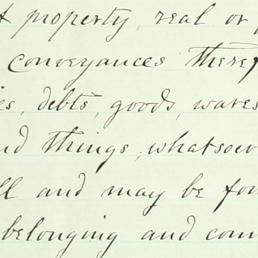 property, real or
conveyances
debts, goods, wares
things, whatsoever
and may be
belonging and